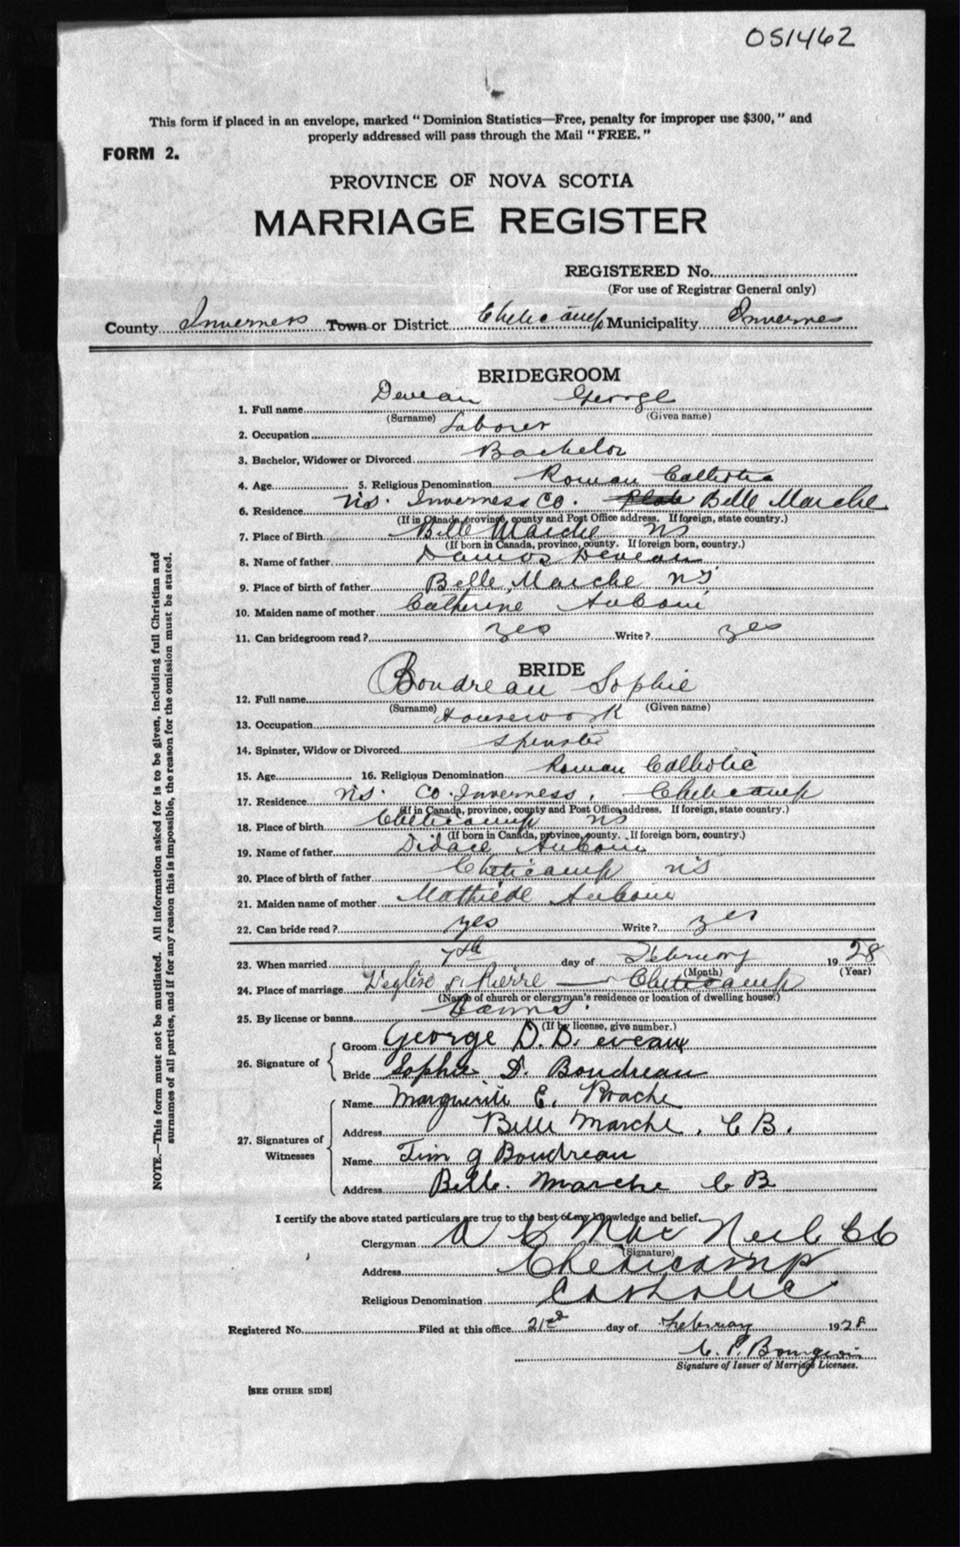 051462
This form if placed in an envelope, marked "Dominion Statistics—Free, penalty for improper use $300," and
properly addressed will pass through the Mail "FREE."
FORM 2.
PROVINCE OF NOVA SCOTIA
MARRIAGE REGISTER
REGISTERED No.
(For use of Registrar General only)
County Inverness Town or District Cheticamp Municipality Inverness
BRIDEGROOM
1. Full name Deveau George
(Surname) (Given name)
2. Occupation Laborer
3. Bachelor, Widower or Divorced Bachelor
4. Age 5. Religious Denomination Roman Catholic
6. Residence NS. Inverness Co. Belle Marche
(If in Canada, province, county and Post Office address. If foreign, state country.)
7. Place of Birth Belle Marche NS
(If born in Canada, province, county. If foreign born, country.)
8. Name of father Deveau
9. Place of birth of father Belle Marche NS
10. Maiden name of mother Catherine Aucoin
11. Can bridegroom read? yes Write? yes
BRIDE
12. Full name Boudreau Sophie
(Surname) (Given name)
13. Occupation Housework
14. Spinster, Widow or Divorced Spinster
15. Age 16. Religious Denomination Roman Catholic
17. Residence NS. Co. Inverness, Cheticamp
(If in Canada, province, county and Post Office address. If foreign, state country.)
18. Place of birth Cheticamp NS
(If born in Canada, province, county. If foreign born, country.)
19. Name of father Didace Aucoin
20. Place of birth of father Cheticamp NS
21. Maiden name of mother Mathilde Aucoin
22. Can bride read? yes Write? yes
23. When married 7th day of February 1928
(Month) (Year)
24. Place of marriage L'eglise St Pierre — Cheticamp
(Name of church or clergyman's residence or location of dwelling house.)
25. By license or banns Banns.
(If by license, give number.)
26. Signature of
Groom George D. Deveaux
Bride Sophie D. Boudreau
27. Signatures of Witnesses
Name Marguerite E. Roache
Address Belle Marche, C B.
Name Tim J Boudreau
Address Belle. Marche C B
I certify the above stated particulars are true to the best of my knowledge and belief.
Clergyman A C MacNeil CC
(Signature)
Address Cheticamp
Religious Denomination Catholic
Registered No. Filed at this office 21st day of February 1928
C. P. Bourgeois
Signature of Issuer of Marriage Licenses.
[SEE OTHER SIDE]
NOTE.—This form must not be mutilated. All information asked for is to be given, including full Christian and
surnames of all parties, and if for any reason this is impossible, the reason for the omission must be stated.